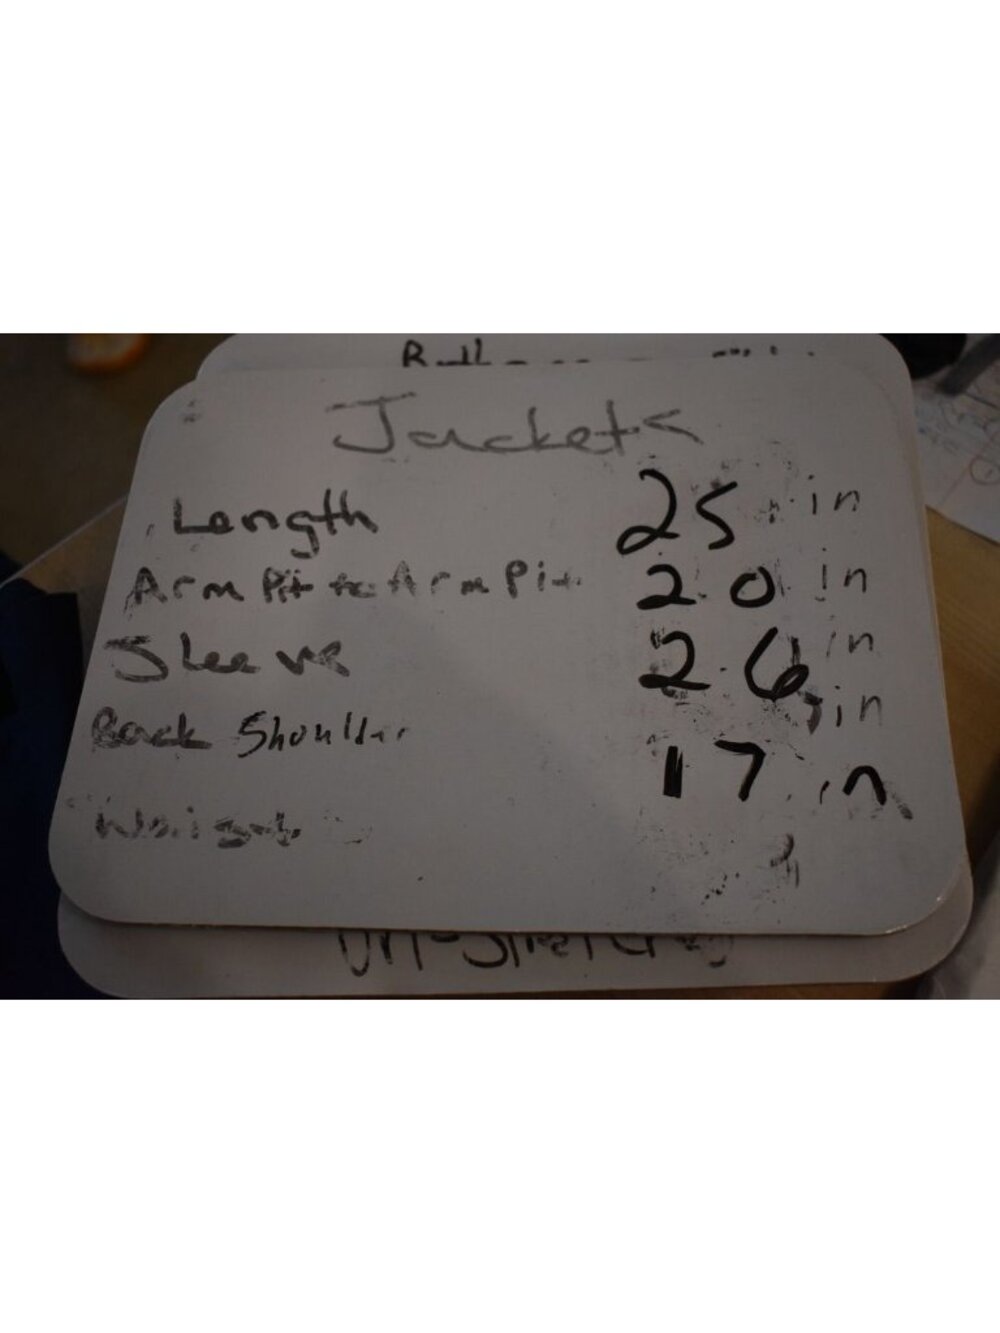 Jackets
Length 25 in
Arm Pit to Arm Pit 20 in
Sleeve 26 in
Back Shoulder in
17 in
Waist